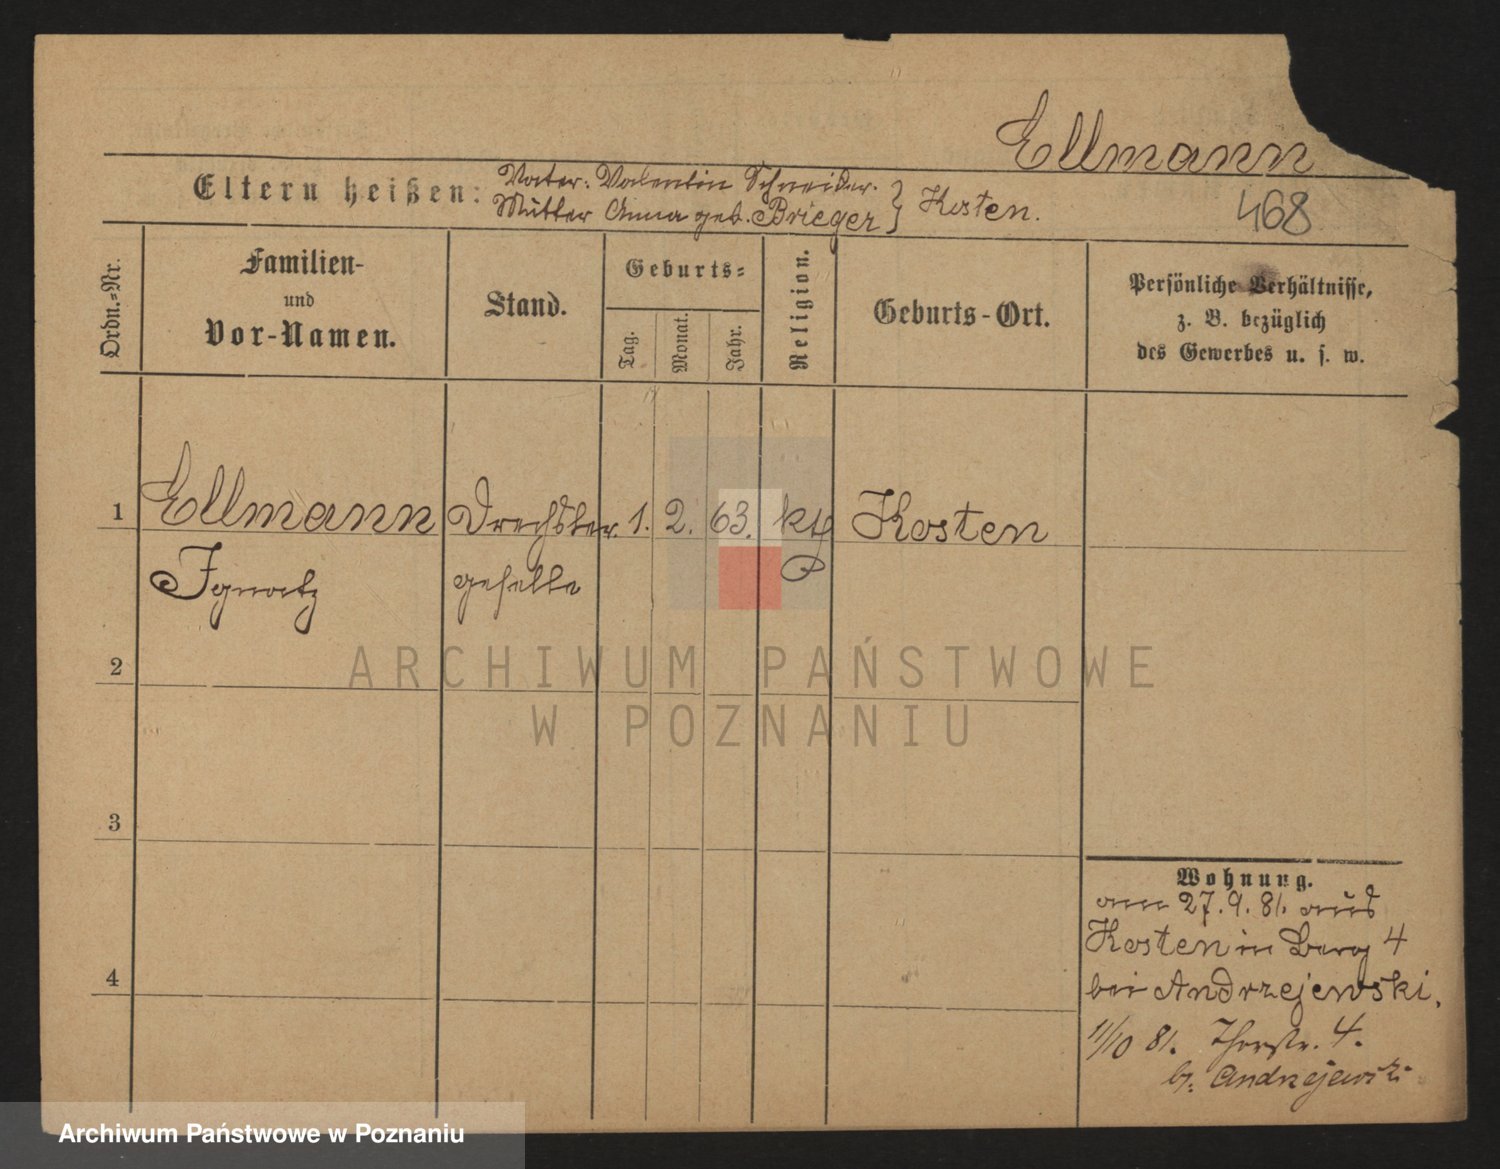 Ellmann
Eltern heißen: Vater: Valentin Schneider.
Mutter Anna geb. Brieger } Kosten.
468
Ordn.-Nr.
Familien-
und
Vor-Namen.
Stand.
Geburts-
Tag.
Monat.
Jahr.
Religion.
Geburts-Ort.
Persönliche Verhältnisse,
z. B. bezüglich
des Gewerbes u. s. w.
1 Ellmann Drechsler. 1. 2. 63. kth Kosten
Ignatz geselle
2
3
4
Wohnung.
am 27. 9. 81. aus
Kosten in Berg 4
bei Andrzejewski.
11/10 81. Thorstr. 4.
b. Andrzejewski
ARCHIWUM PAŃSTWOWE
W POZNANIU
Archiwum Państwowe w Poznaniu